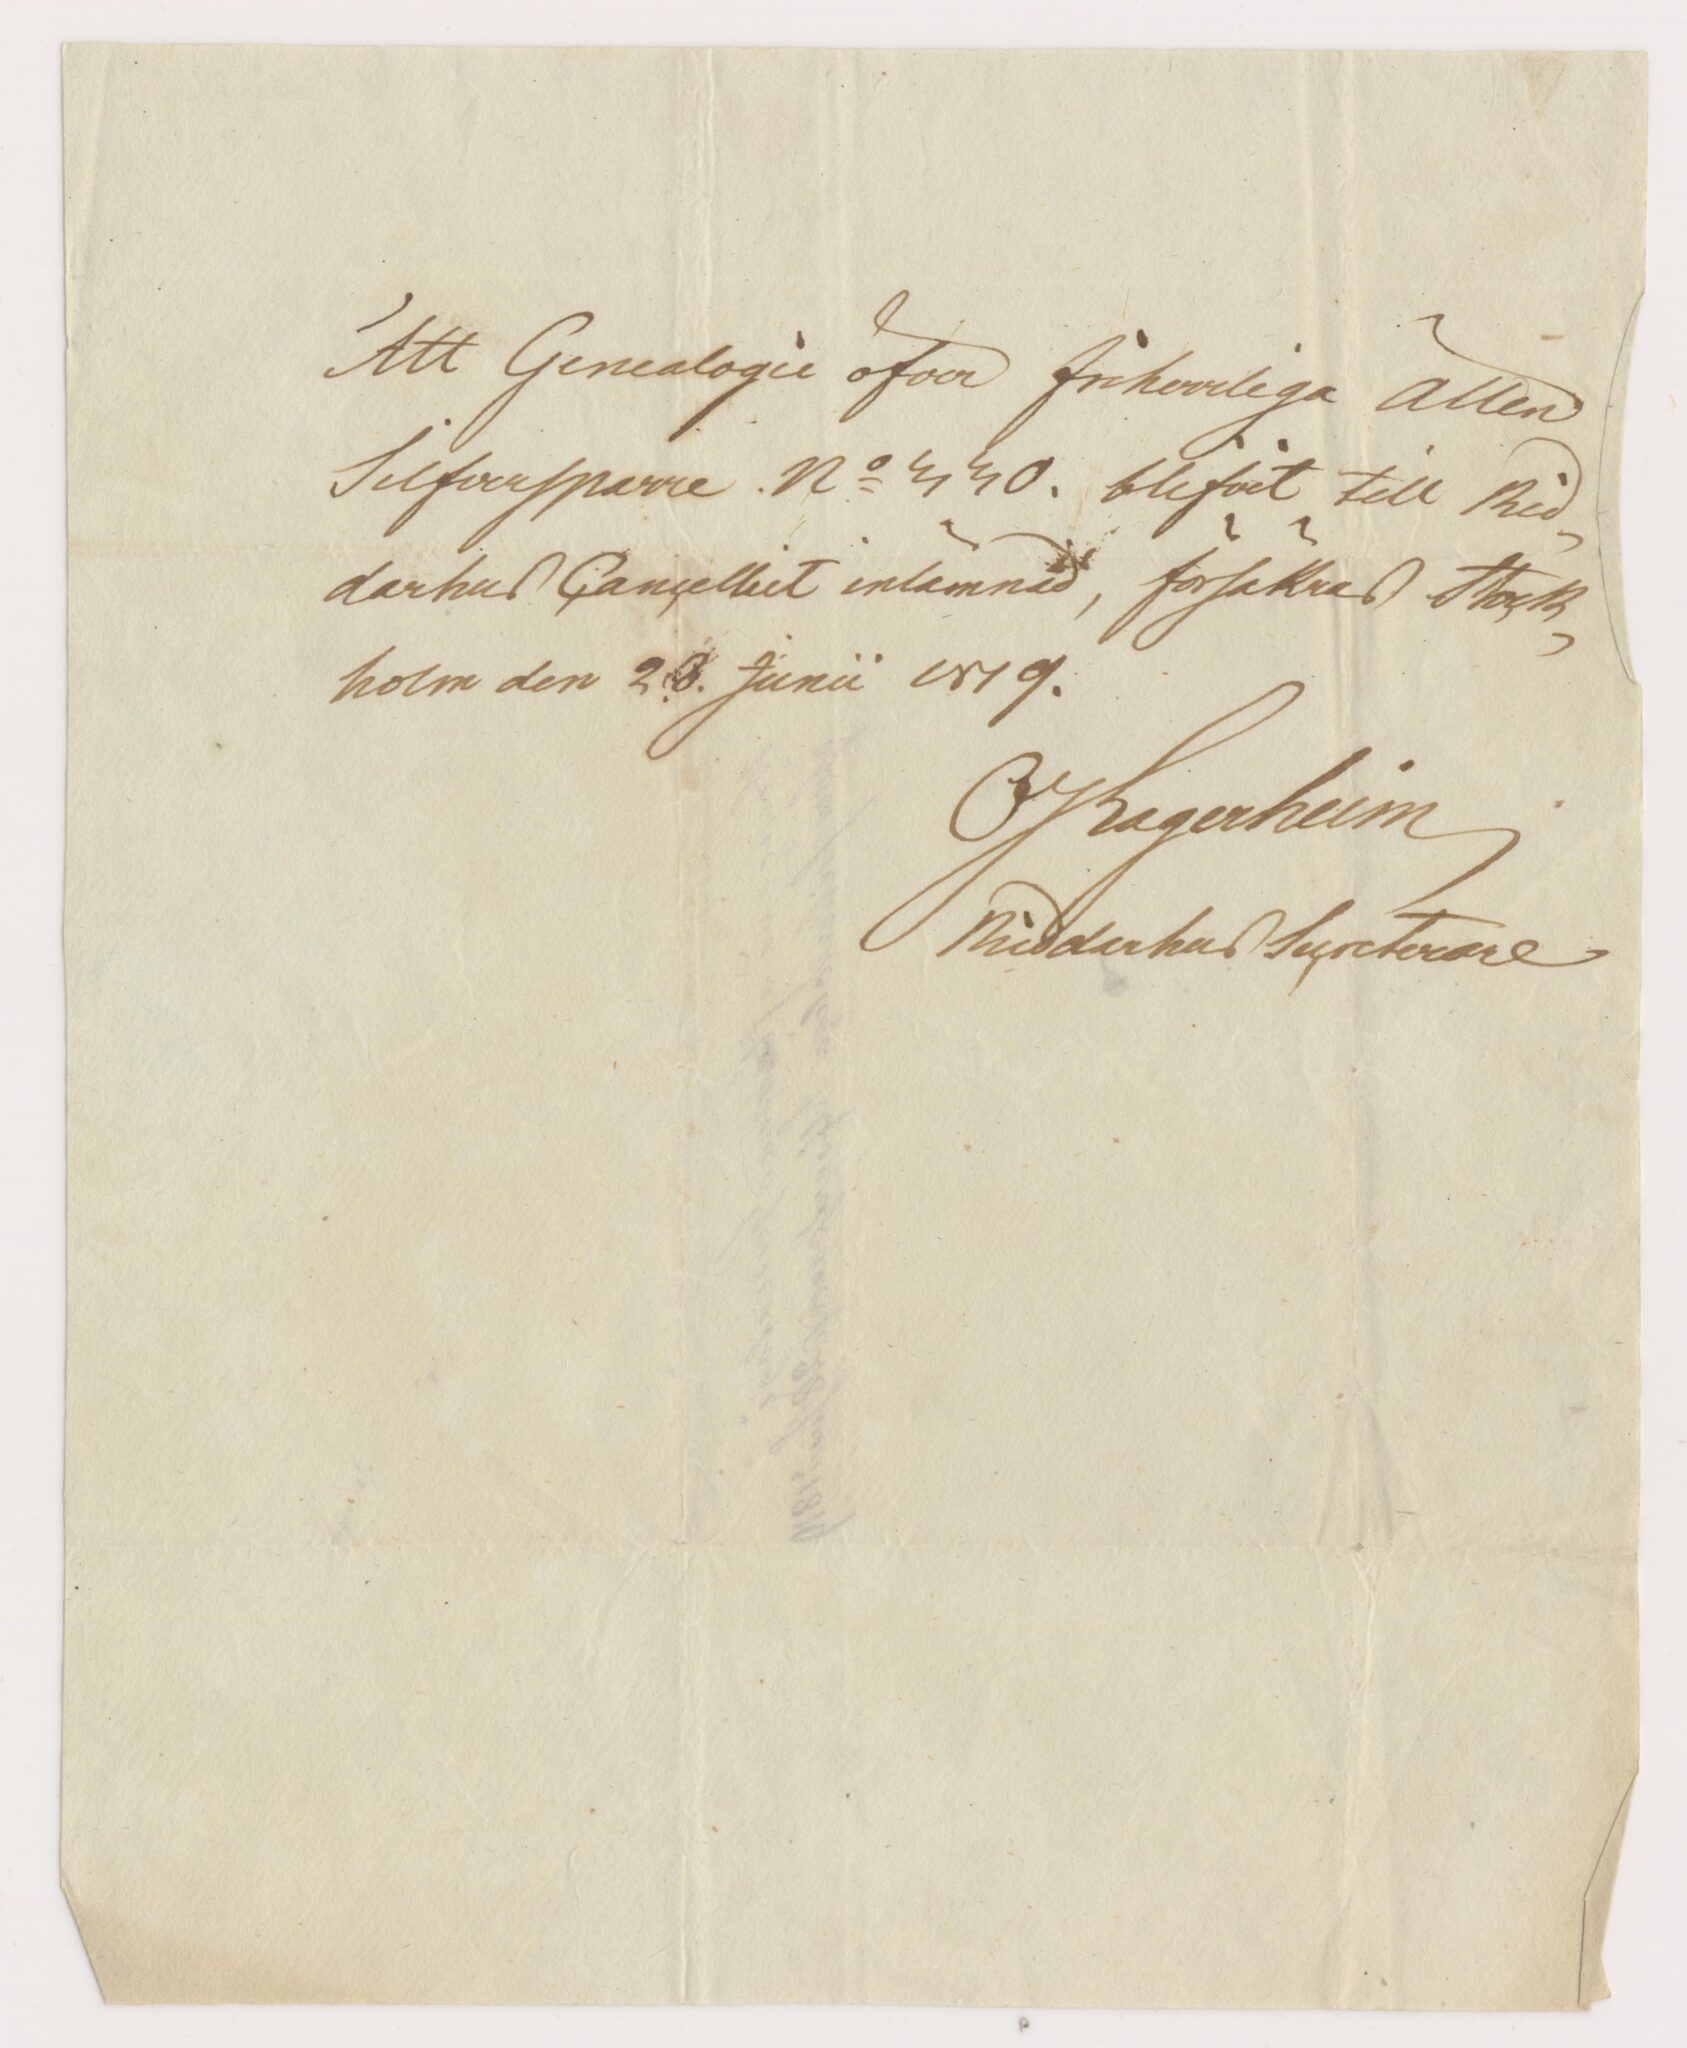 Att Genealogie öfver friherrliga Ätten
Silfversparre N:o 440. blifvit till Rid-
darhus Cancelliet inlämnad, försäkras Stock-
holm den 28. Junii 1819.
Ridderhus Secreterare